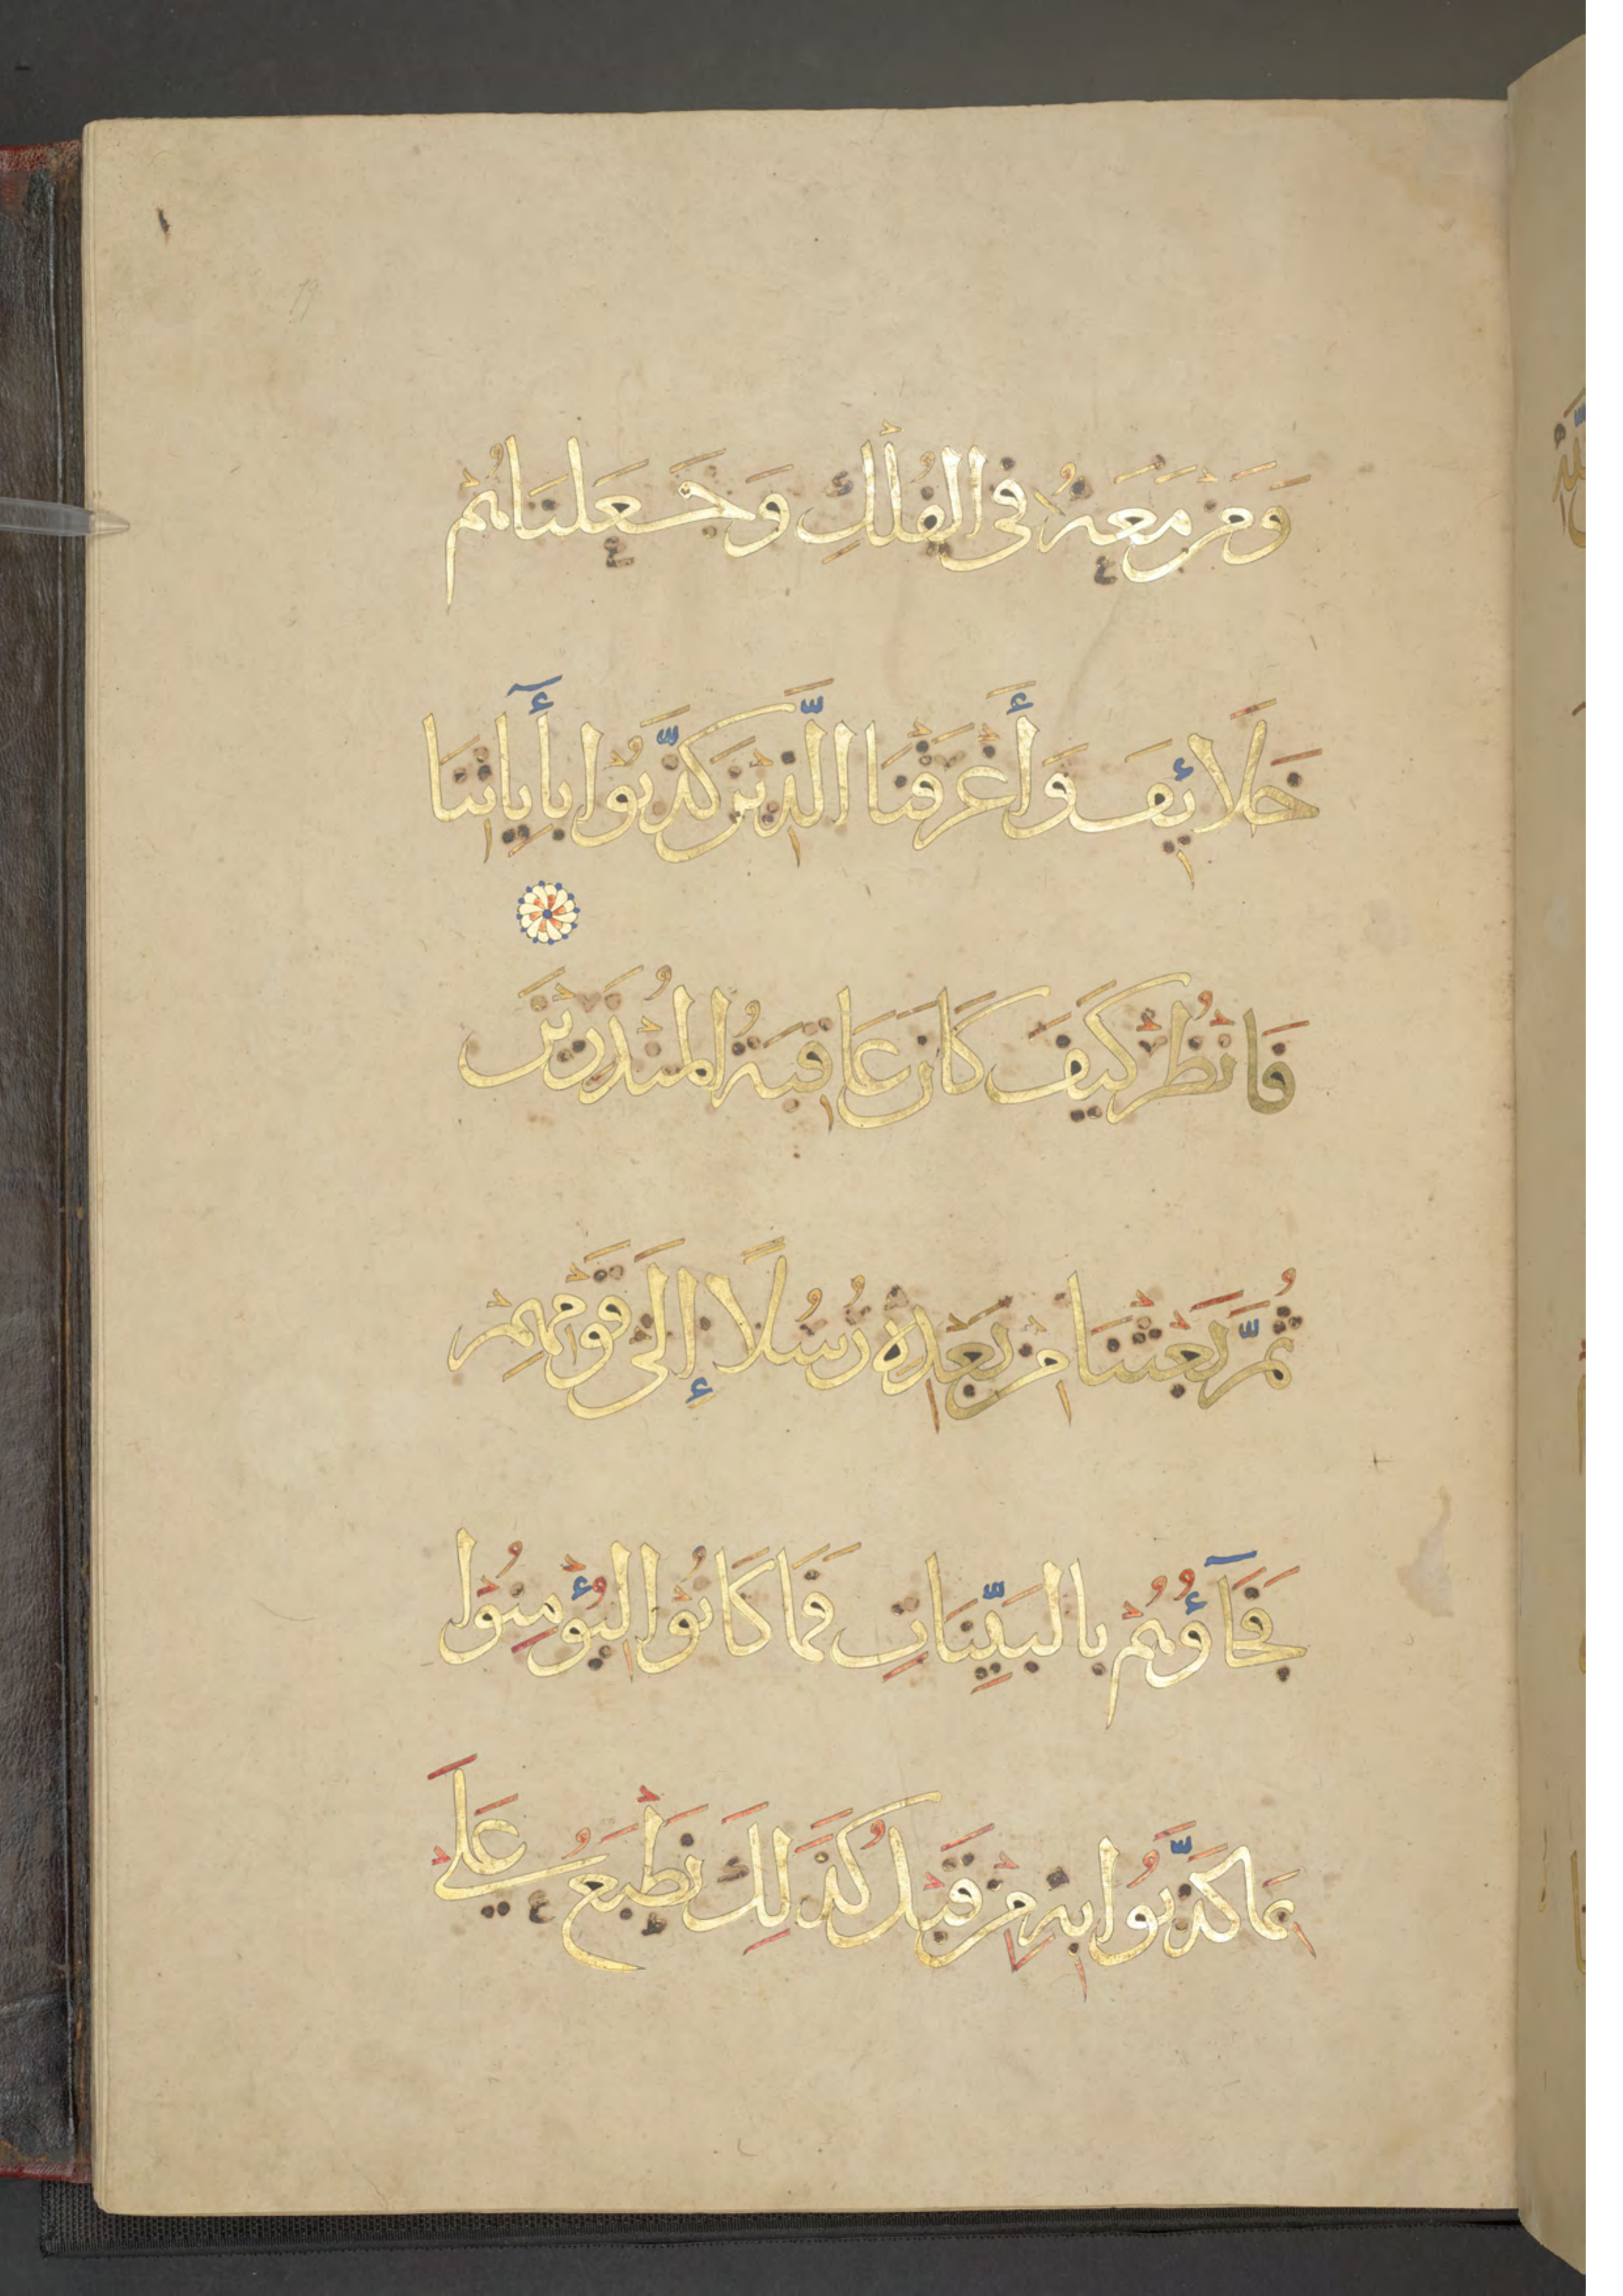 وَمَنْ مَعَهُ فِي الْفُلْكِ وَجَعَلْنَاهُمْ
خَلَائِفَ وَأَغْرَقْنَا الَّذِينَ كَذَّبُوا بِآيَاتِنَا
فَانْظُرْ كَيْفَ كَانَ عَاقِبَةُ الْمُنْذَرِينَ
ثُمَّ بَعَثْنَا مِنْ بَعْدِهِ رُسُلًا إِلَى قَوْمِهِمْ
فَجَآؤُهُمْ بِالْبَيِّنَاتِ فَمَا كَانُوا لِيُؤْمِنُوا
بِمَا كَذَّبُوا بِهِ مِنْ قَبْلُ كَذَلِكَ نَطْبَعُ عَلَى